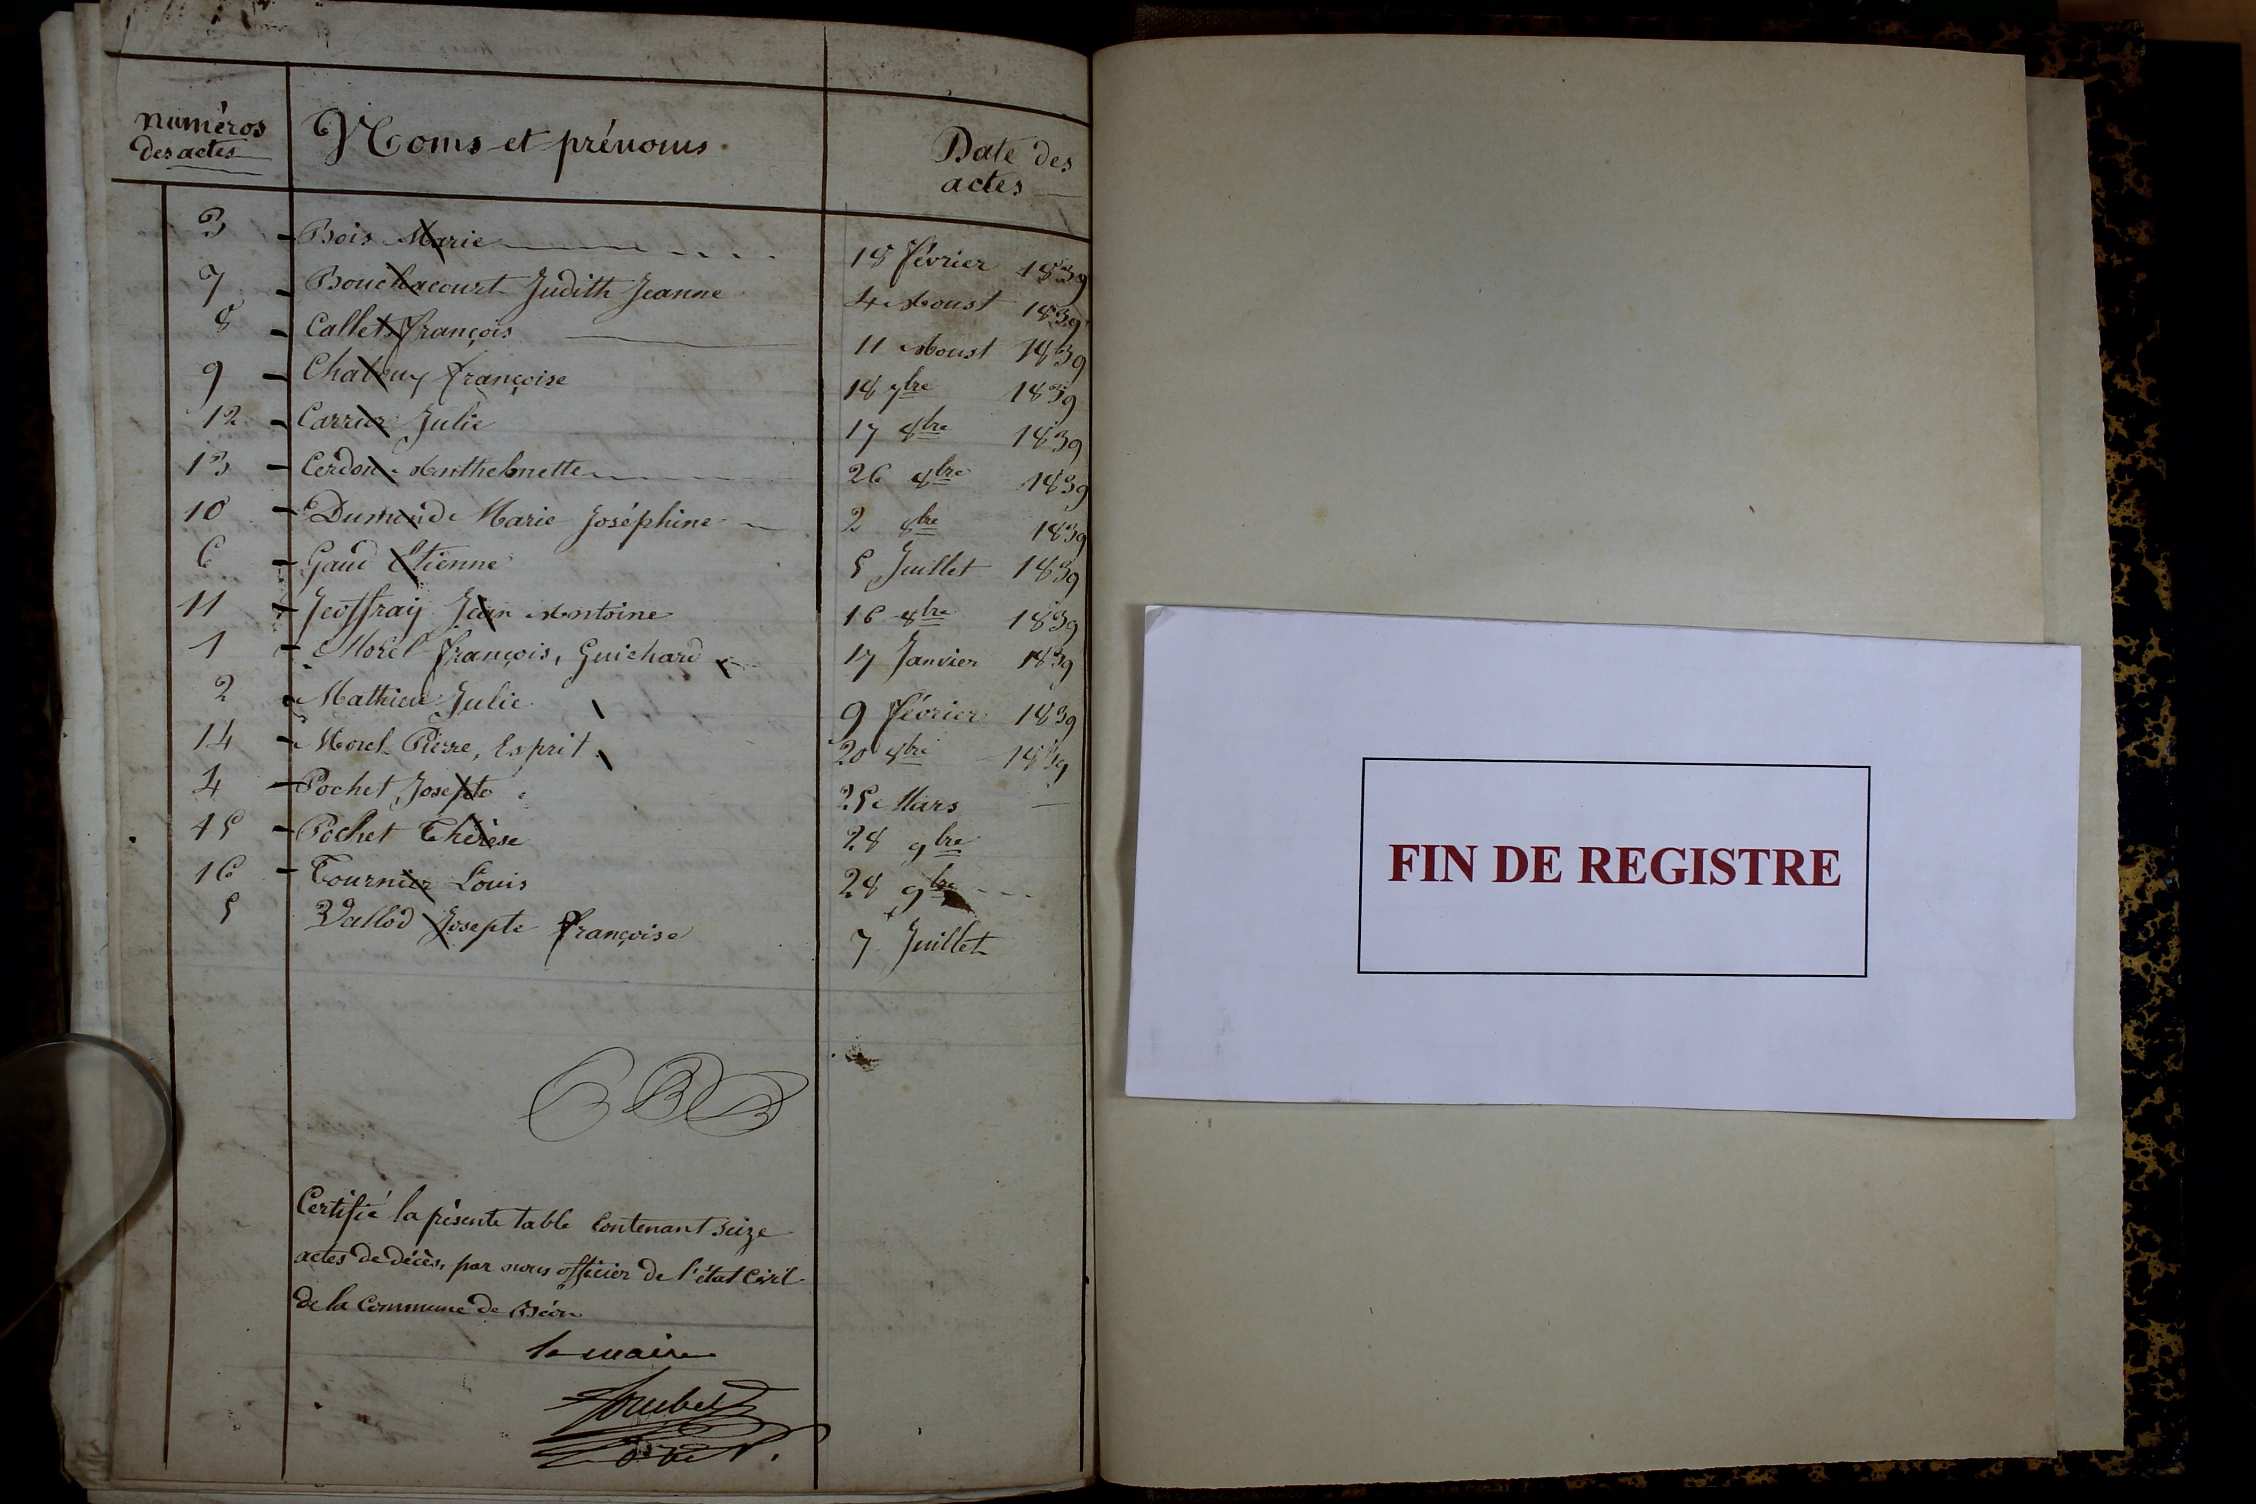 numéros des actes
Noms et prénoms
Date des actes
3 Bois Marie 18 février 1839
7 Bouchacourt Judith Jeanne 4 Aoust 1839
8 Callet François 11 Aoust 1839
9 Françoise 18 7bre 1839
12 Carrier Julie 17 8bre 1839
13 Cerdon Anthelmette 26 8bre 1839
10 Dumond Marie Joséphine 2 8bre 1839
6 Gaud Etienne 5 Juillet 1839
11 Jeoffray Jean Antoine 16 8bre 1839
1 Morel François, Guichard 17 Janvier 1839
2 Mathieu Julie 9 février 1839
14 Morel Pierre, Esprit 20 1839
4 Pochet Josepte 25 Mars
15 Pochet Thérèse 28 9bre
16 Tournier Louis 28 9bre
5 Vallod Josepte Françoise 7 Juillet
Certifié la présente table contenant seize
actes de décès, par nous officier de l'état civil
de la Commune de Béon
le maire
FIN DE REGISTRE